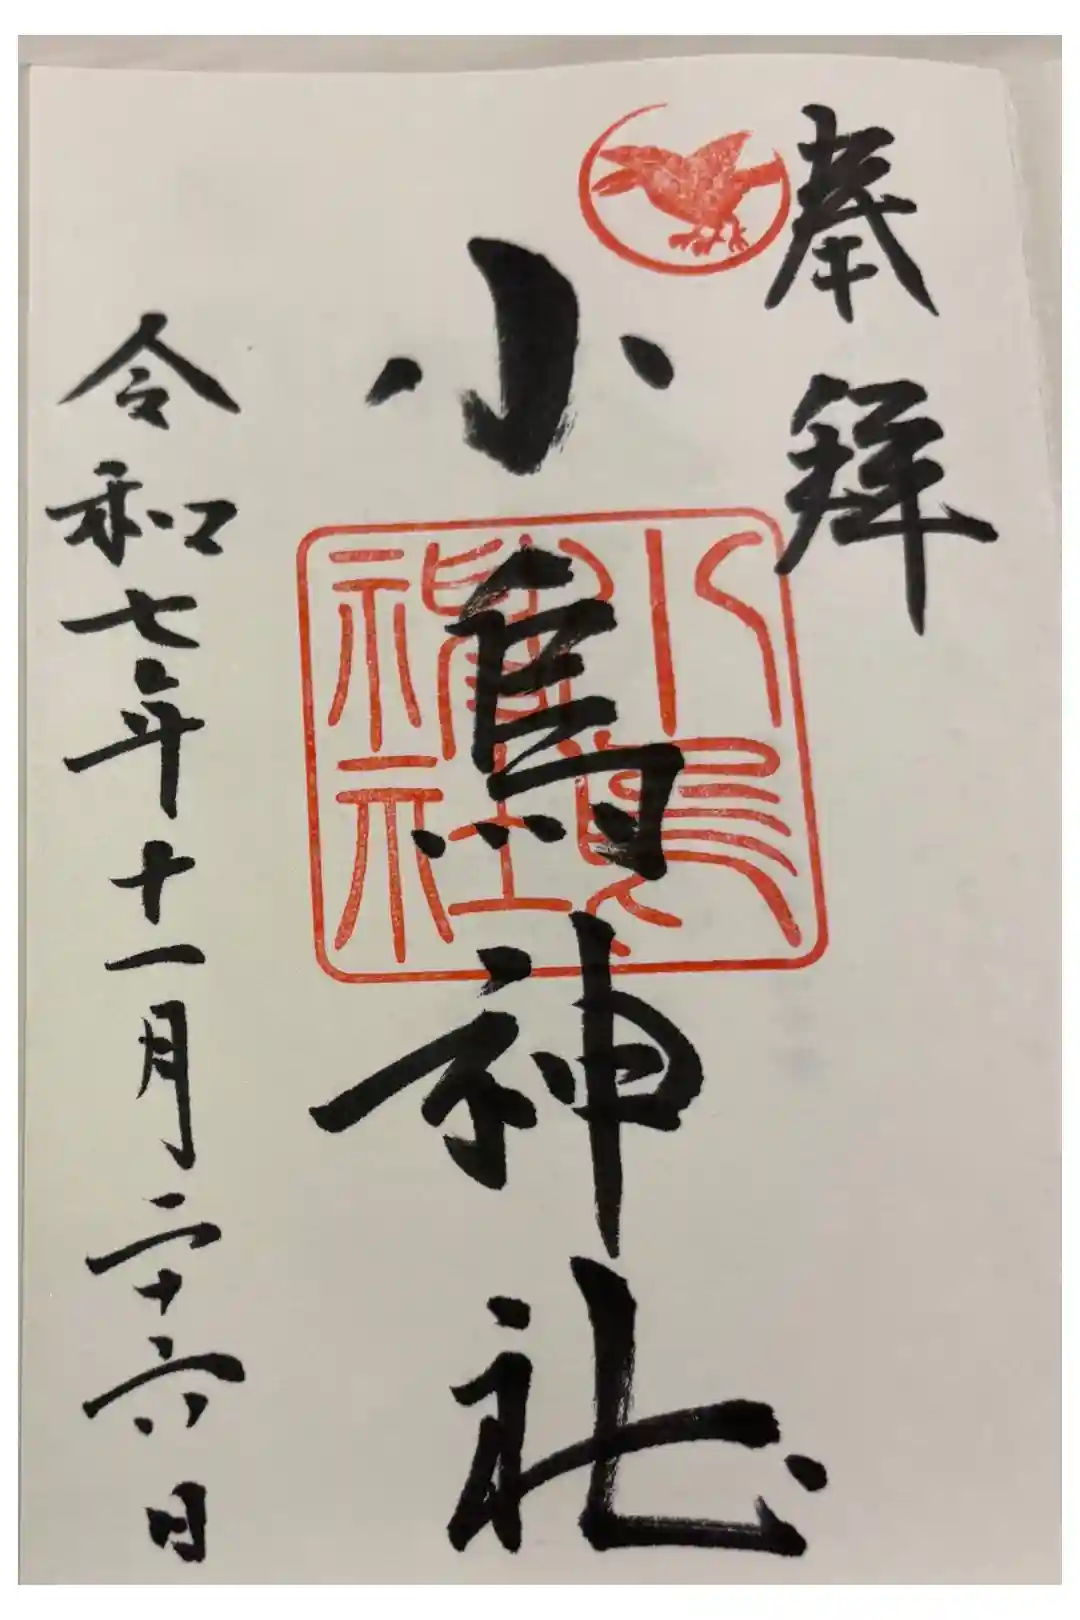 奉拝
小烏神社
小烏神社
令和七年十一月二十六日